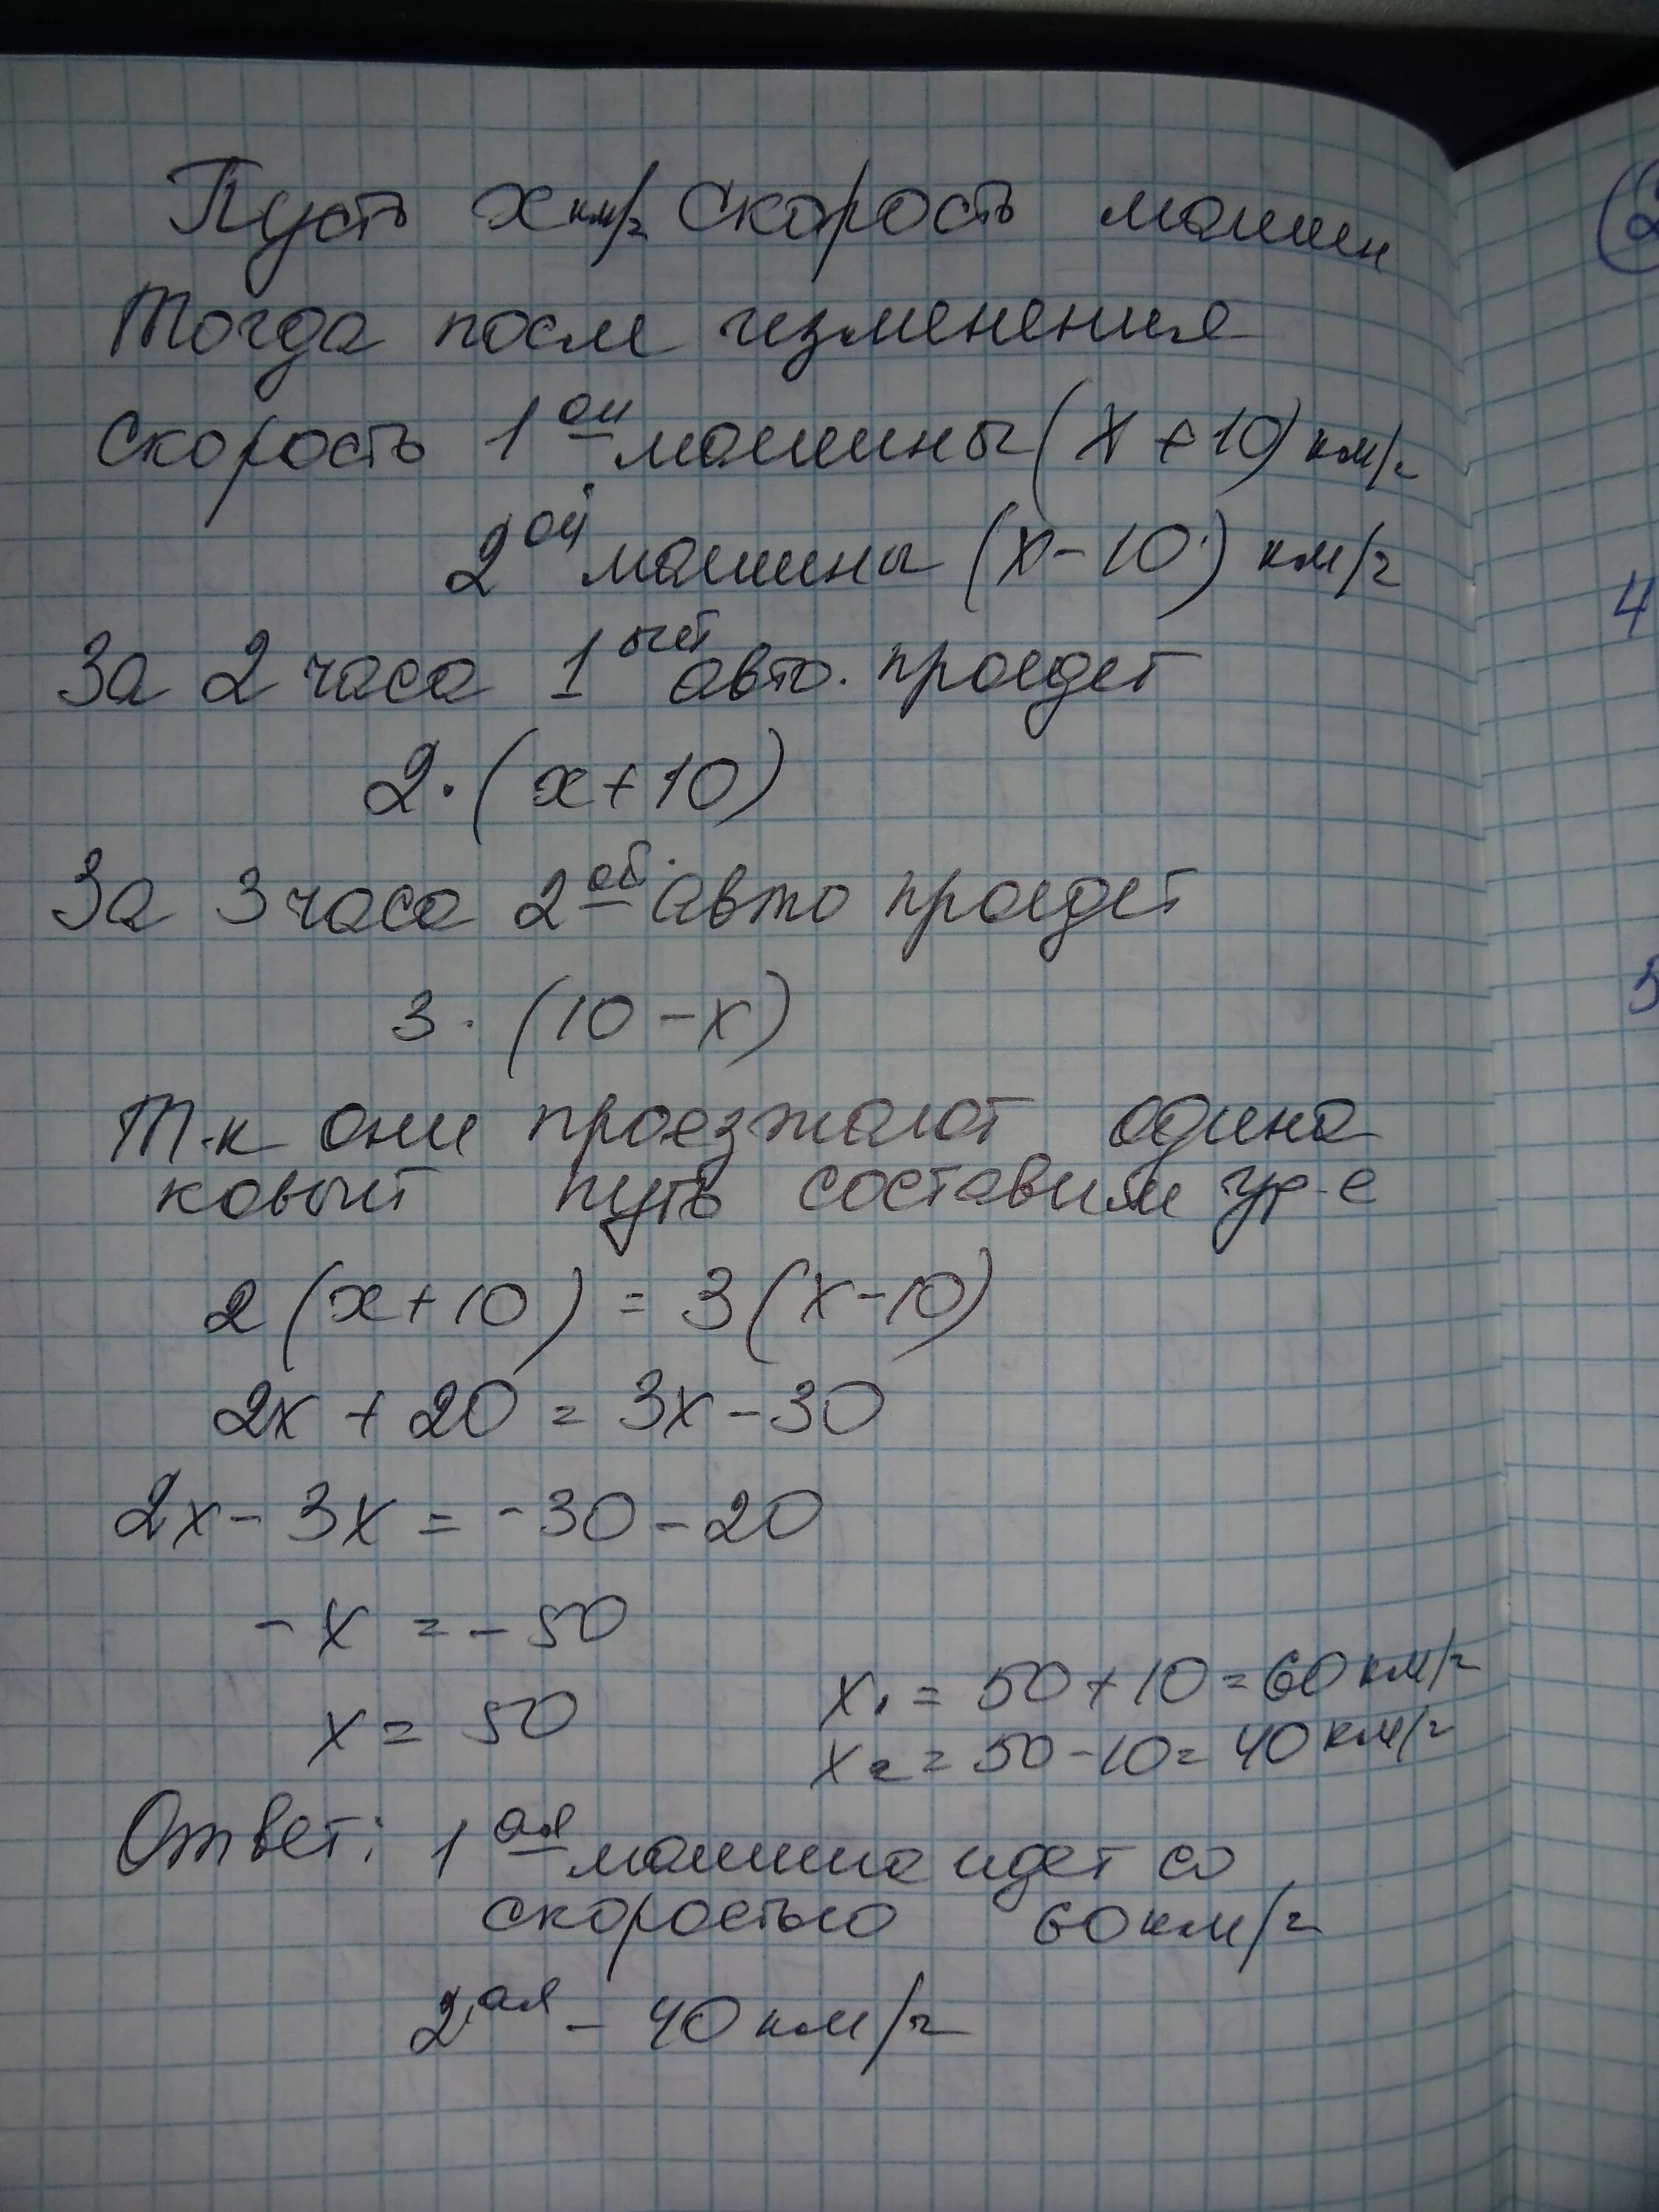 Пусть х км/ч скорость машин
Тогда после изменения
скорость 1ой машины (х+10) км/ч
2ой машины (х-10) км/ч
За 2 часа 1ый авто. проедет
2·(х+10)
За 3 часа 2ой авто проедет
3·(10-х)
Т.к они проезжают одина
ковый путь составим ур-е
2(х+10) = 3(х-10)
2х + 20 = 3х - 30
2х - 3х = -30 - 20
-х = -50
х = 50
х1 = 50+10=60 км/ч
х2 = 50-10= 40 км/ч
Ответ: 1ая машина идет со
скоростью 60 км/ч
2ая - 40 км/ч
(2
4